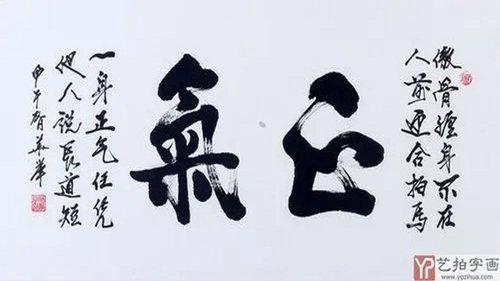 傲骨缠身不在
人前迎合拍馬
正氣
一身正气任凭
他人说長道短
甲午
YP 艺拍字画
www.ypzihua.com